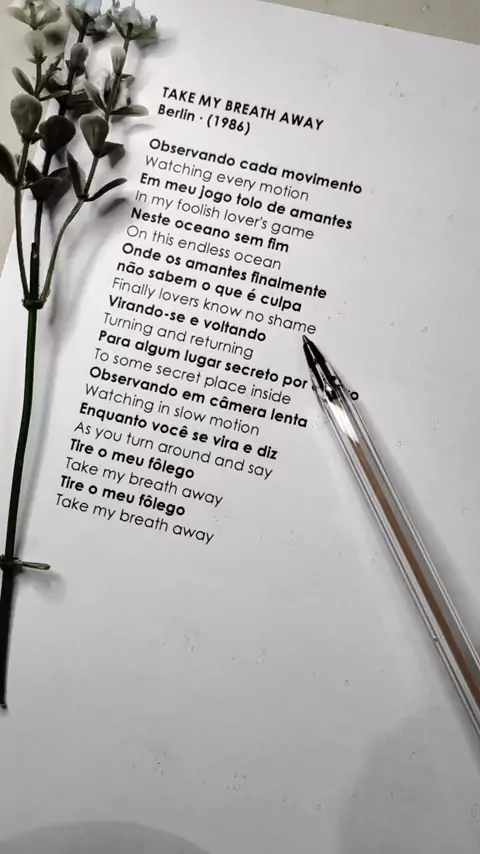 TAKE MY BREATH AWAY
Berlin · (1986)
Observando cada movimento
Watching every motion
Em meu jogo tolo de amantes
In my foolish lover's game
Neste oceano sem fim
On this endless ocean
Onde os amantes finalmente
não sabem o que é culpa
Finally lovers know no shame
Virando-se e voltando
Turning and returning
Para algum lugar secreto por
To some secret place inside
Observando em câmera lenta
Watching in slow motion
Enquanto você se vira e diz
As you turn around and say
Tire o meu fôlego
Take my breath away
Tire o meu fôlego
Take my breath away